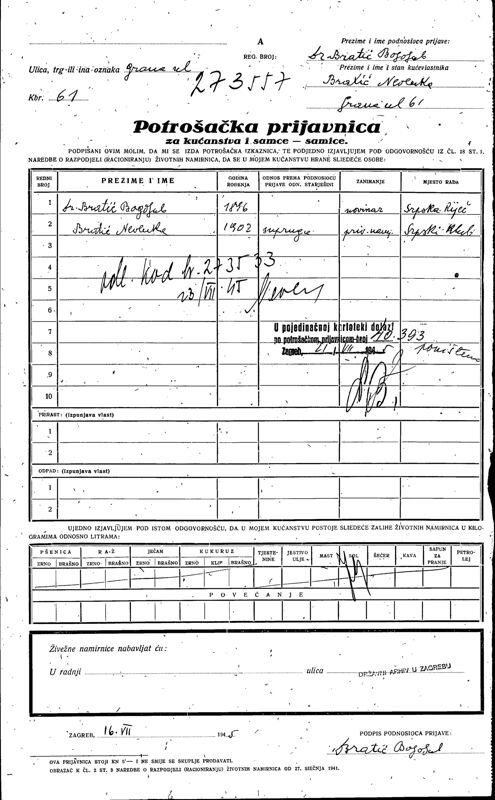 A
REG. BROJ:
273557
Prezime i ime podnosioca prijave:
Dr Bratić Bogoljub
Prezime i ime i stan kućevlastnika
Bratić Nevenka
61
Ulica, trg ili ina oznaka
Kbr. 61
Potrošačka prijavnica
za kućanstva i samce — samice.
POTPISANI OVIM MOLIM, DA MI SE IZDA POTROŠAČKA ISKAZNICA, TE PODJEDNO IZJAVLJUJEM POD ODGOVORNOŠĆU IZ ČL. 18 ST. 1.
NAREDBE O RAZPODJELI (RACIONIRANJU) ŽIVOTNIH NAMIRNICA, DA SE U MOJEM KUĆANSTVU HRANE SLIJEDEĆE OSOBE:
REDNI BROJ PREZIME I IME GODINA ROĐENJA ODNOS PREMA PODNOSIOCU PRIJAVE ODN. STARJEŠINI ZANIMANJE MJESTO RADA
1 Dr. Bratić Bogoljub 1896 novinar Srpska Riječ
2 Bratić Nevenka 1902 supruga Srpski
3
4 kod br. 273533
5 23/VII 45
6
7 U pojedinačnoj kartoteki dolazi
po potrošačkom prijavnicom broj 10.393
8 Zagreb, 21. VII 1945 poništeno
9
10
PRIRAST: (izpunjava vlast)
1
2
ODPAD: (izpunjava vlast)
1
2
UJEDNO IZJAVLJUJEM POD ISTOM ODGOVORNOŠĆU, DA U MOJEM KUĆANSTVU POSTOJE SLIEDEĆE ZALIHE ŽIVOTNIH NAMIRNICA U KILO-
GRAMIMA ODNOSNO LITRAMA:
PŠENICA RAŽ JEČAM KUKURUZ TJESTENINE JESTIVO ULJE MAST SOL ŠEĆER KAVA SAPUN ZA PRANJE PETROLEJ
ZRNO BRAŠNO ZRNO BRAŠNO ZRNO BRAŠNO ZRNO KLIP BRAŠNO
POVEĆANJE
Živežne namirnice nabavljat ću:
U radnji ulica DRŽAVNI ARHIV U ZAGREBU
ZAGREB, 16. VII 1945
POTPIS PODNOSIOCA PRIJAVE:
Bratić Bogoljub
OVA PRIJAVNICA STOJI KN 5'— I NE SMIJE SE SKUPLJE PRODAVATI.
OBRAZAC K ČL. 2 ST. 3 NAREDBE O RAZPODJELI (RACIONIRANJU) ŽIVOTNIH NAMIRNICA OD 27. SIEČNJA 1941.